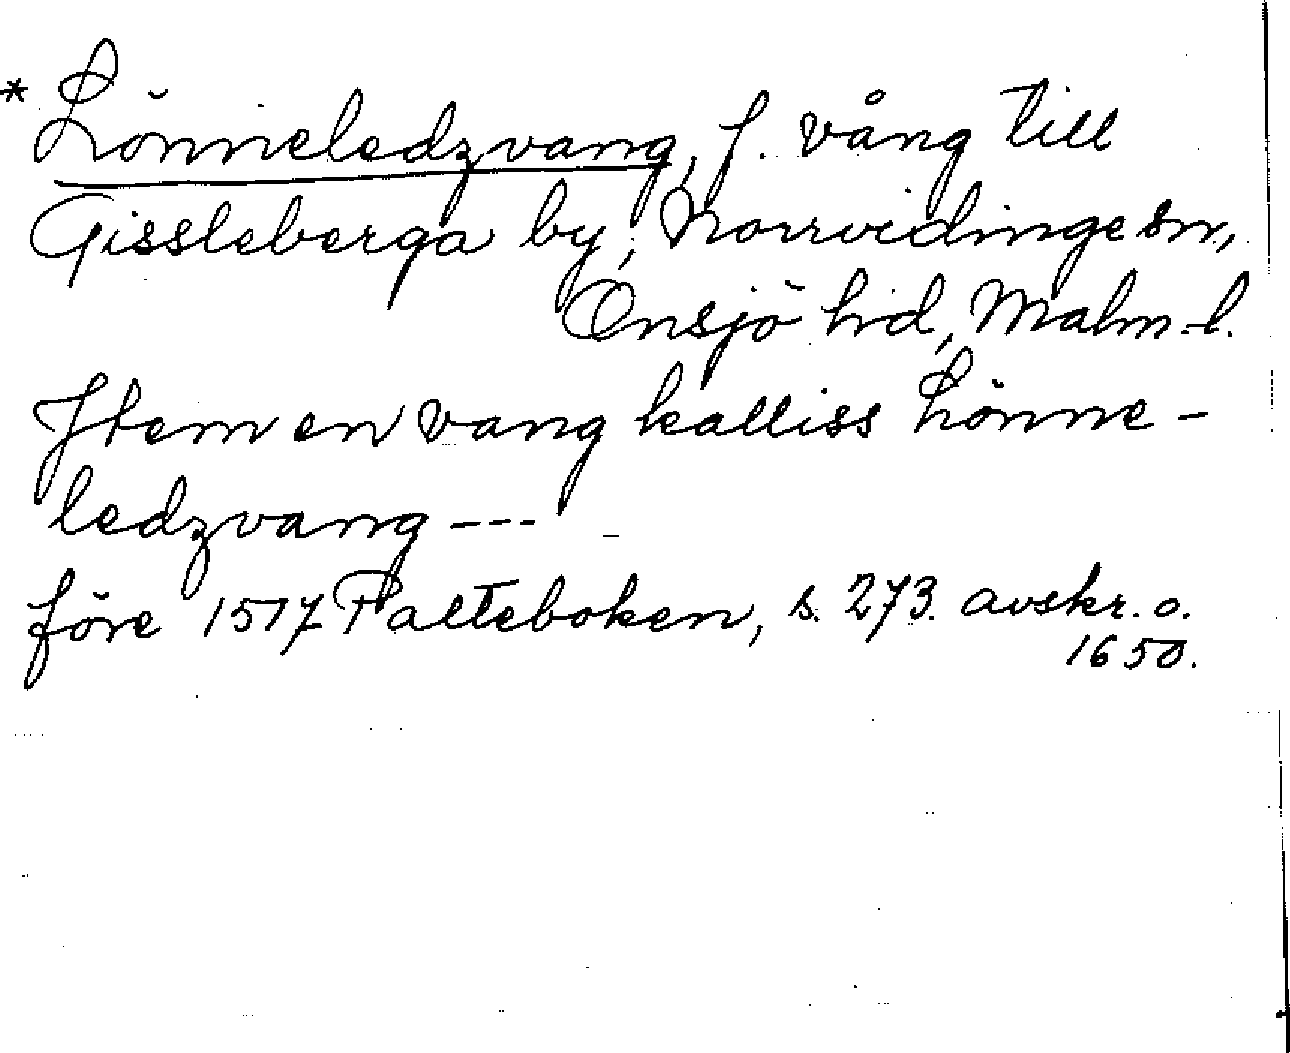 * Lönneledzvang, f. vång till
Gissleberga by, Norrvidinge sn,
Onsjö hd, Malm-l.
Item en vang kalliss Lönne-
ledzvang ---
före 1517 Palteboken, s. 273. avskr. o.
1650.